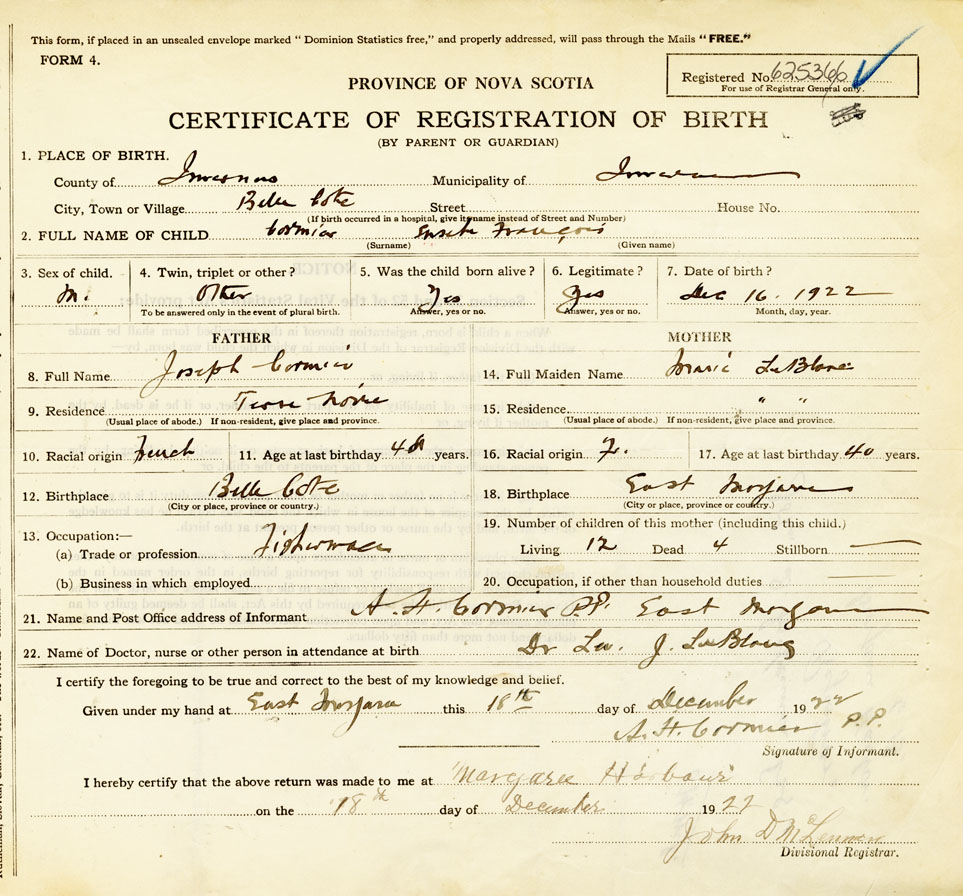 This form, if placed in an unsealed envelope marked "Dominion Statistics free," and properly addressed, will pass through the Mails "FREE."
FORM 4.
Registered No. 625366
For use of Registrar General only.
PROVINCE OF NOVA SCOTIA
CERTIFICATE OF REGISTRATION OF BIRTH
(BY PARENT OR GUARDIAN)
1. PLACE OF BIRTH.
County of Inverness Municipality of Inverness
City, Town or Village Belle Cote Street House No.
(If birth occurred in a hospital, give its name instead of Street and Number)
2. FULL NAME OF CHILD Cormier François
(Surname) (Given name)
3. Sex of child. 4. Twin, triplet or other? 5. Was the child born alive? 6. Legitimate? 7. Date of birth?
M. Other Yes Yes Dec 16. 1922
To be answered only in the event of plural birth. Answer, yes or no. Answer, yes or no. Month, day, year.
FATHER MOTHER
8. Full Name Joseph Cormier 14. Full Maiden Name Marie LeBlanc
9. Residence 15. Residence " "
(Usual place of abode.) If non-resident, give place and province. (Usual place of abode.) If non-resident, give place and province.
10. Racial origin French 11. Age at last birthday years. 16. Racial origin F. 17. Age at last birthday 40 years.
12. Birthplace Belle Cote 18. Birthplace East Margaree
(City or place, province or country.) (City or place, province or country.)
13. Occupation:— 19. Number of children of this mother (including this child.)
(a) Trade or profession Fisherman Living 12 Dead 4 Stillborn —
(b) Business in which employed 20. Occupation, if other than household duties
21. Name and Post Office address of Informant A. H. Cormier P.P. East Margaree
22. Name of Doctor, nurse or other person in attendance at birth Dr J. LeBlanc
I certify the foregoing to be true and correct to the best of my knowledge and belief.
Given under my hand at East Margaree this 18th day of December 1922
A. H. Cormier P.P.
Signature of Informant.
I hereby certify that the above return was made to me at Margaree Harbour
on the 18th day of December 1922
John D McLennan
Divisional Registrar.